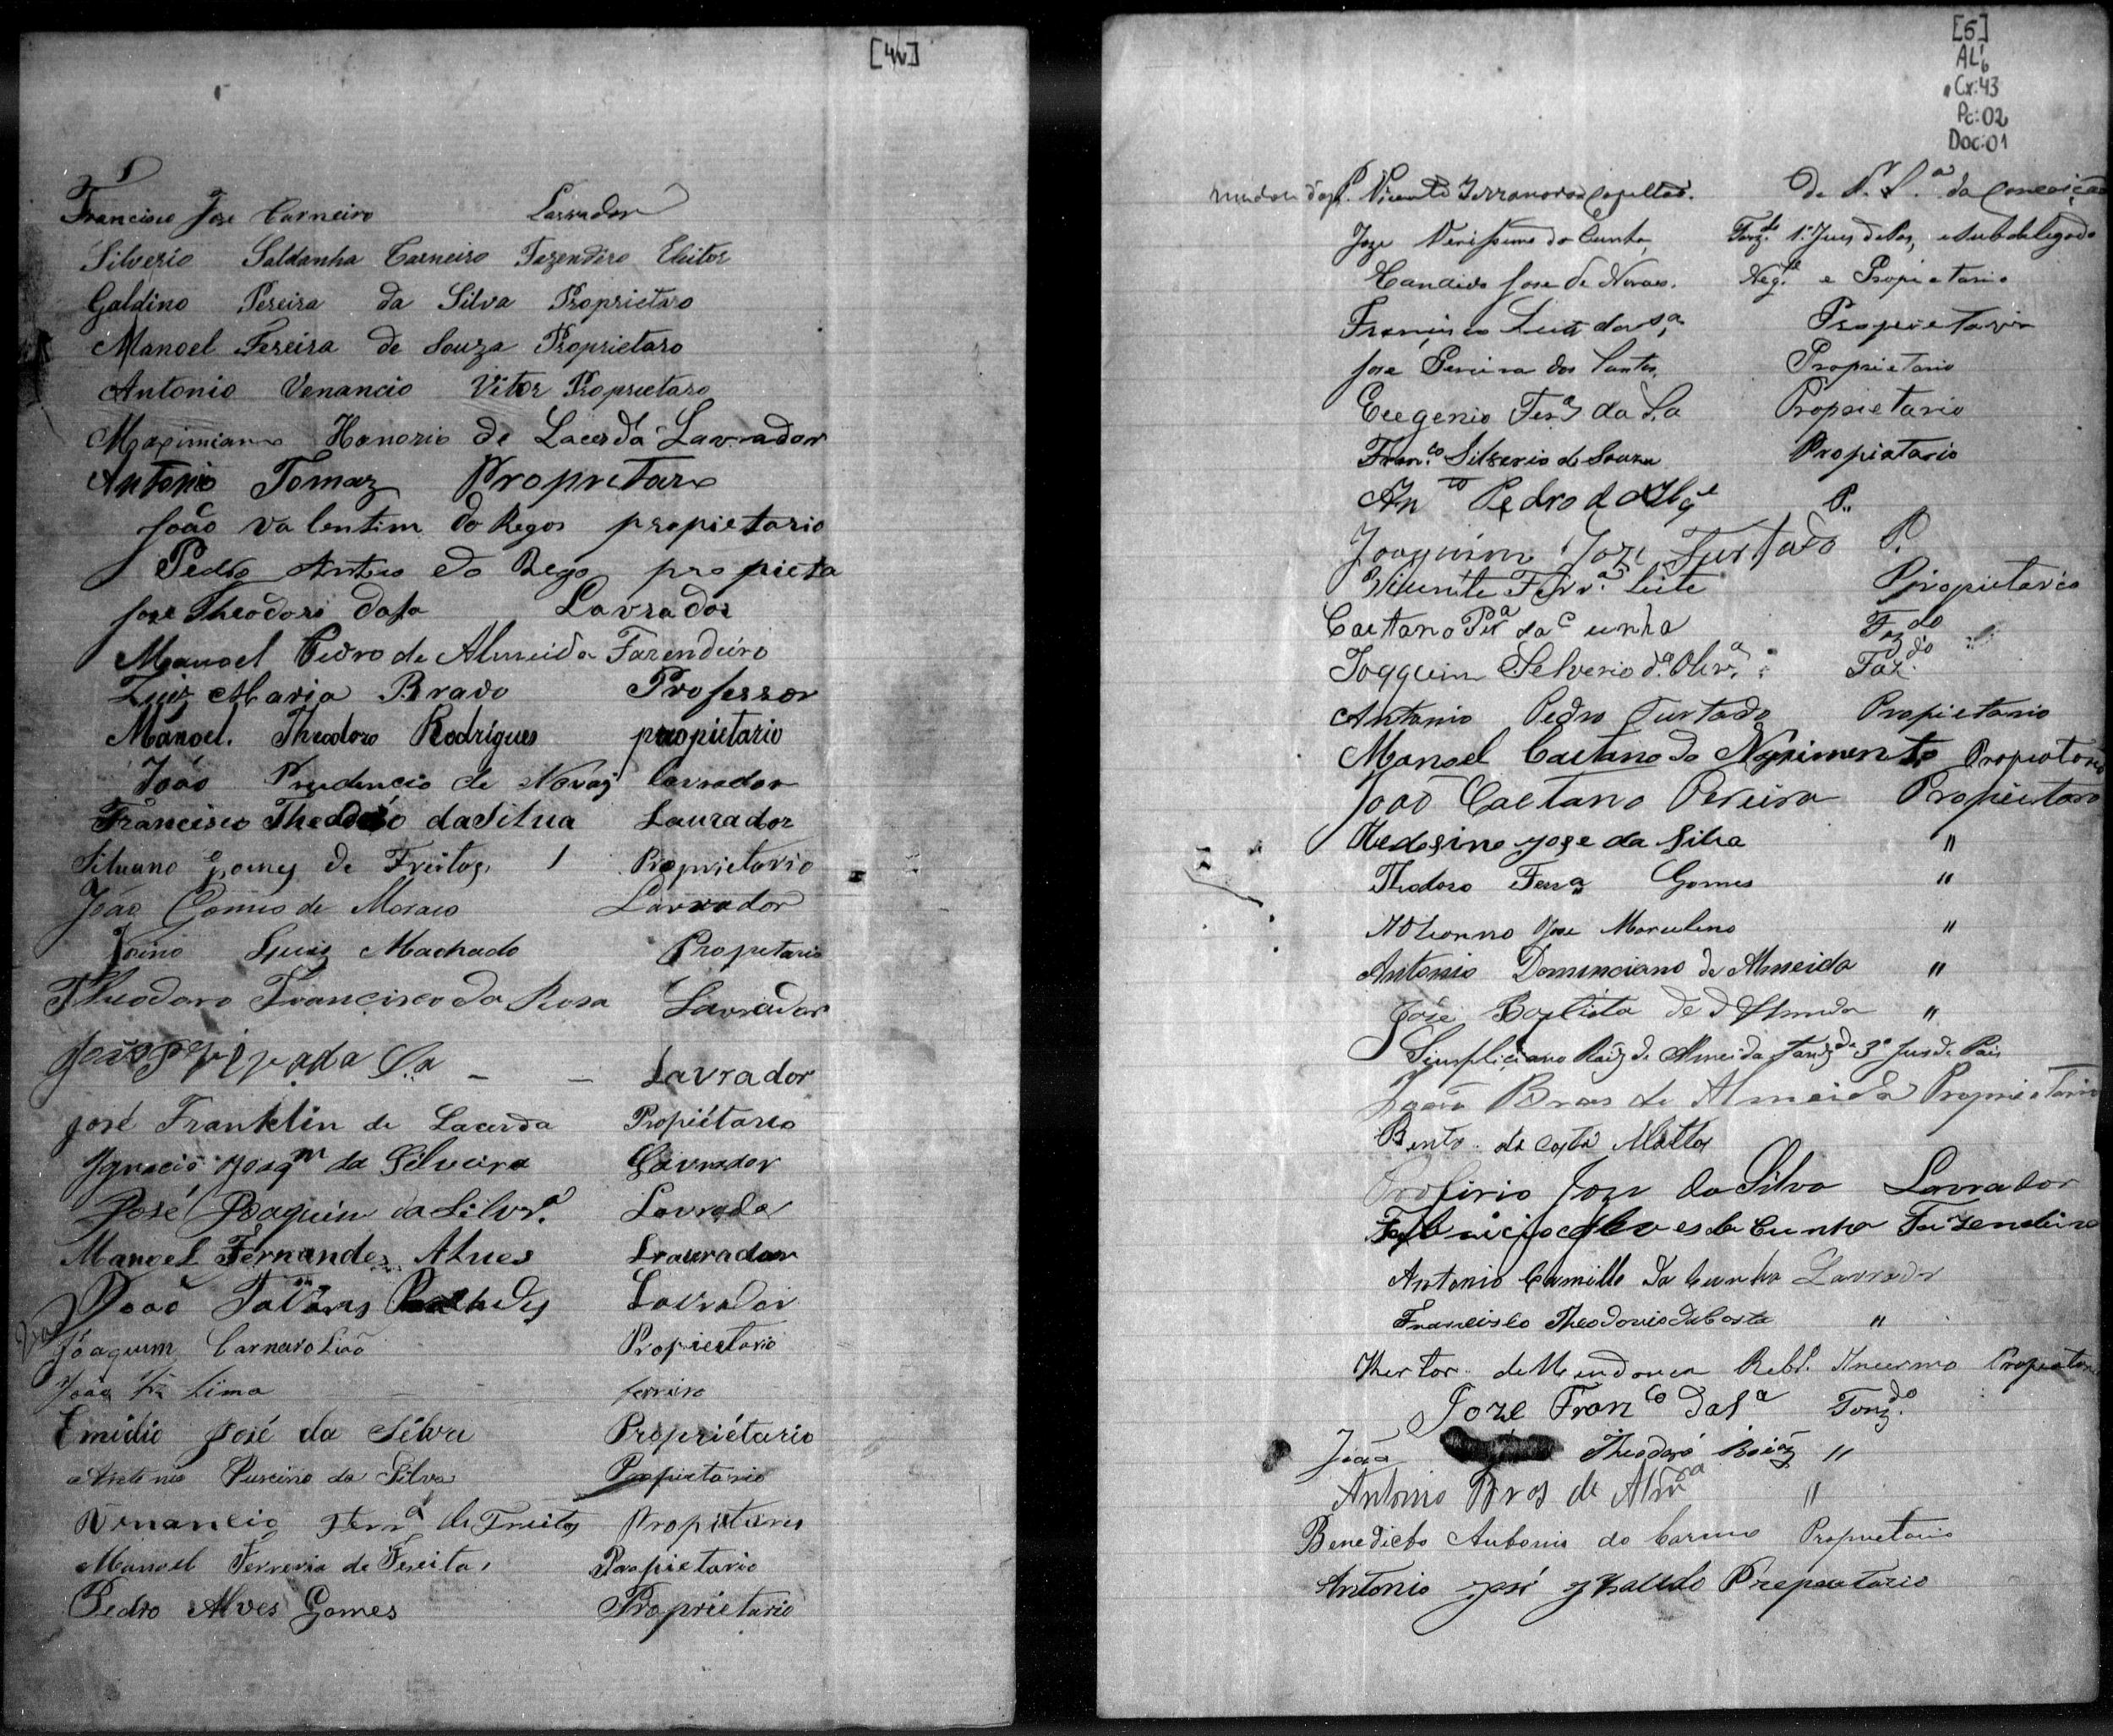 [4v]
Francisco Jose Carneiro Lavrador
Silverio Saldanha Carneiro Fazendero Eleitor
Galdino Pereira da Silva Proprietaro
Manoel Fereira de Souza Proprietaro
Antonio Venancio Vitor Proprietaro
Maximiano Honorio de Lacerda Lavrador
Antonio Tomaz Proprietaro
João valentim do Regos propietario
Pedro Antero do Rego propieta
Jose Theodoro da Sa Lavrador
Manoel Pedro de Almeida Fazendeiro
Luiz Maria Bravo Professor
Manoel. Theodoro Rodrigues propietario
João Prudencio de Novaes lavrador
Francisco Theodoro da Silva Laurador
Silvano Gomes de Freitas Proprietario
João Gomes de Moraes Lavrador
Luiz Machado Propetario
Theodoro Francisco da Rosa Lavrador
Lavrador
José Franklin de Lacerda Propiétario
Ignacio Joaqm da Silveira Lavrador
José Joaquim da Silvrª Lavrador
Manoel Fernandes Alves Laurador
João Lavrador
Joaquim Carneiro Leão Proprietario
João Lima ferreiro
Emidio José da Silva Propriétario
Antonio da Silva Propietario
Venancio Ferrª de Freitas Propietario
Manoel Ferreria de Fereitas Propietario
Pedro Alves Gomes Proprietario
[5]
AL6
Cx:43
Pc:02
Doc:01
P. Vicente Terranova Capellão. de N. S.ª da Conceição
Joze Verissimo da Cunha Fazdo 1º Juis de Pas, e Subdelegado
Candido Jose de Novaes. Negte e Propietario
Francisco Luis da Sª Propietario
Jose Pereira dos Santos Proprietario
Eugenio Ferª da Sa Proprietario
Franco Silverio de Souza Propiatario
Anto Pedro d P.
Joaquim Joze Furtado P.
Vicente Ferrª Leite Propietario
Caetano Perª da Cunha Fazdo
Joaquim Selverio d Olivª Fazdo
Antonio Pedro Furtado Propietario
Manoel Caetano do Nascimento Propiatario
João Caetano Pereira Propietaro
Jose da Silva "
Theodoro Ferrª Gomes "
Jose Marculino "
Antonio Dominciano de Almeida "
José Baptista de Almeida "
Simpliciano Roiz de Almeida Fazdo 3º Jus de Pais
João Bras de Almeida Proprietario
Bento da Costa Mattos
Profirio Joze da Silva Lavrador
Fabricio Alves da Cunha Fazendeiro
Antonio Camillo da Cunha Lavrador
Francisco Theodorio da Costa "
de Mendonca Propiatario
Joze Franco da Sª Fazdo
João Theodoro "
Antonio Bras de Almdª "
Benedicto Antonio do Carmo Proprietario
Antonio José Propeatario